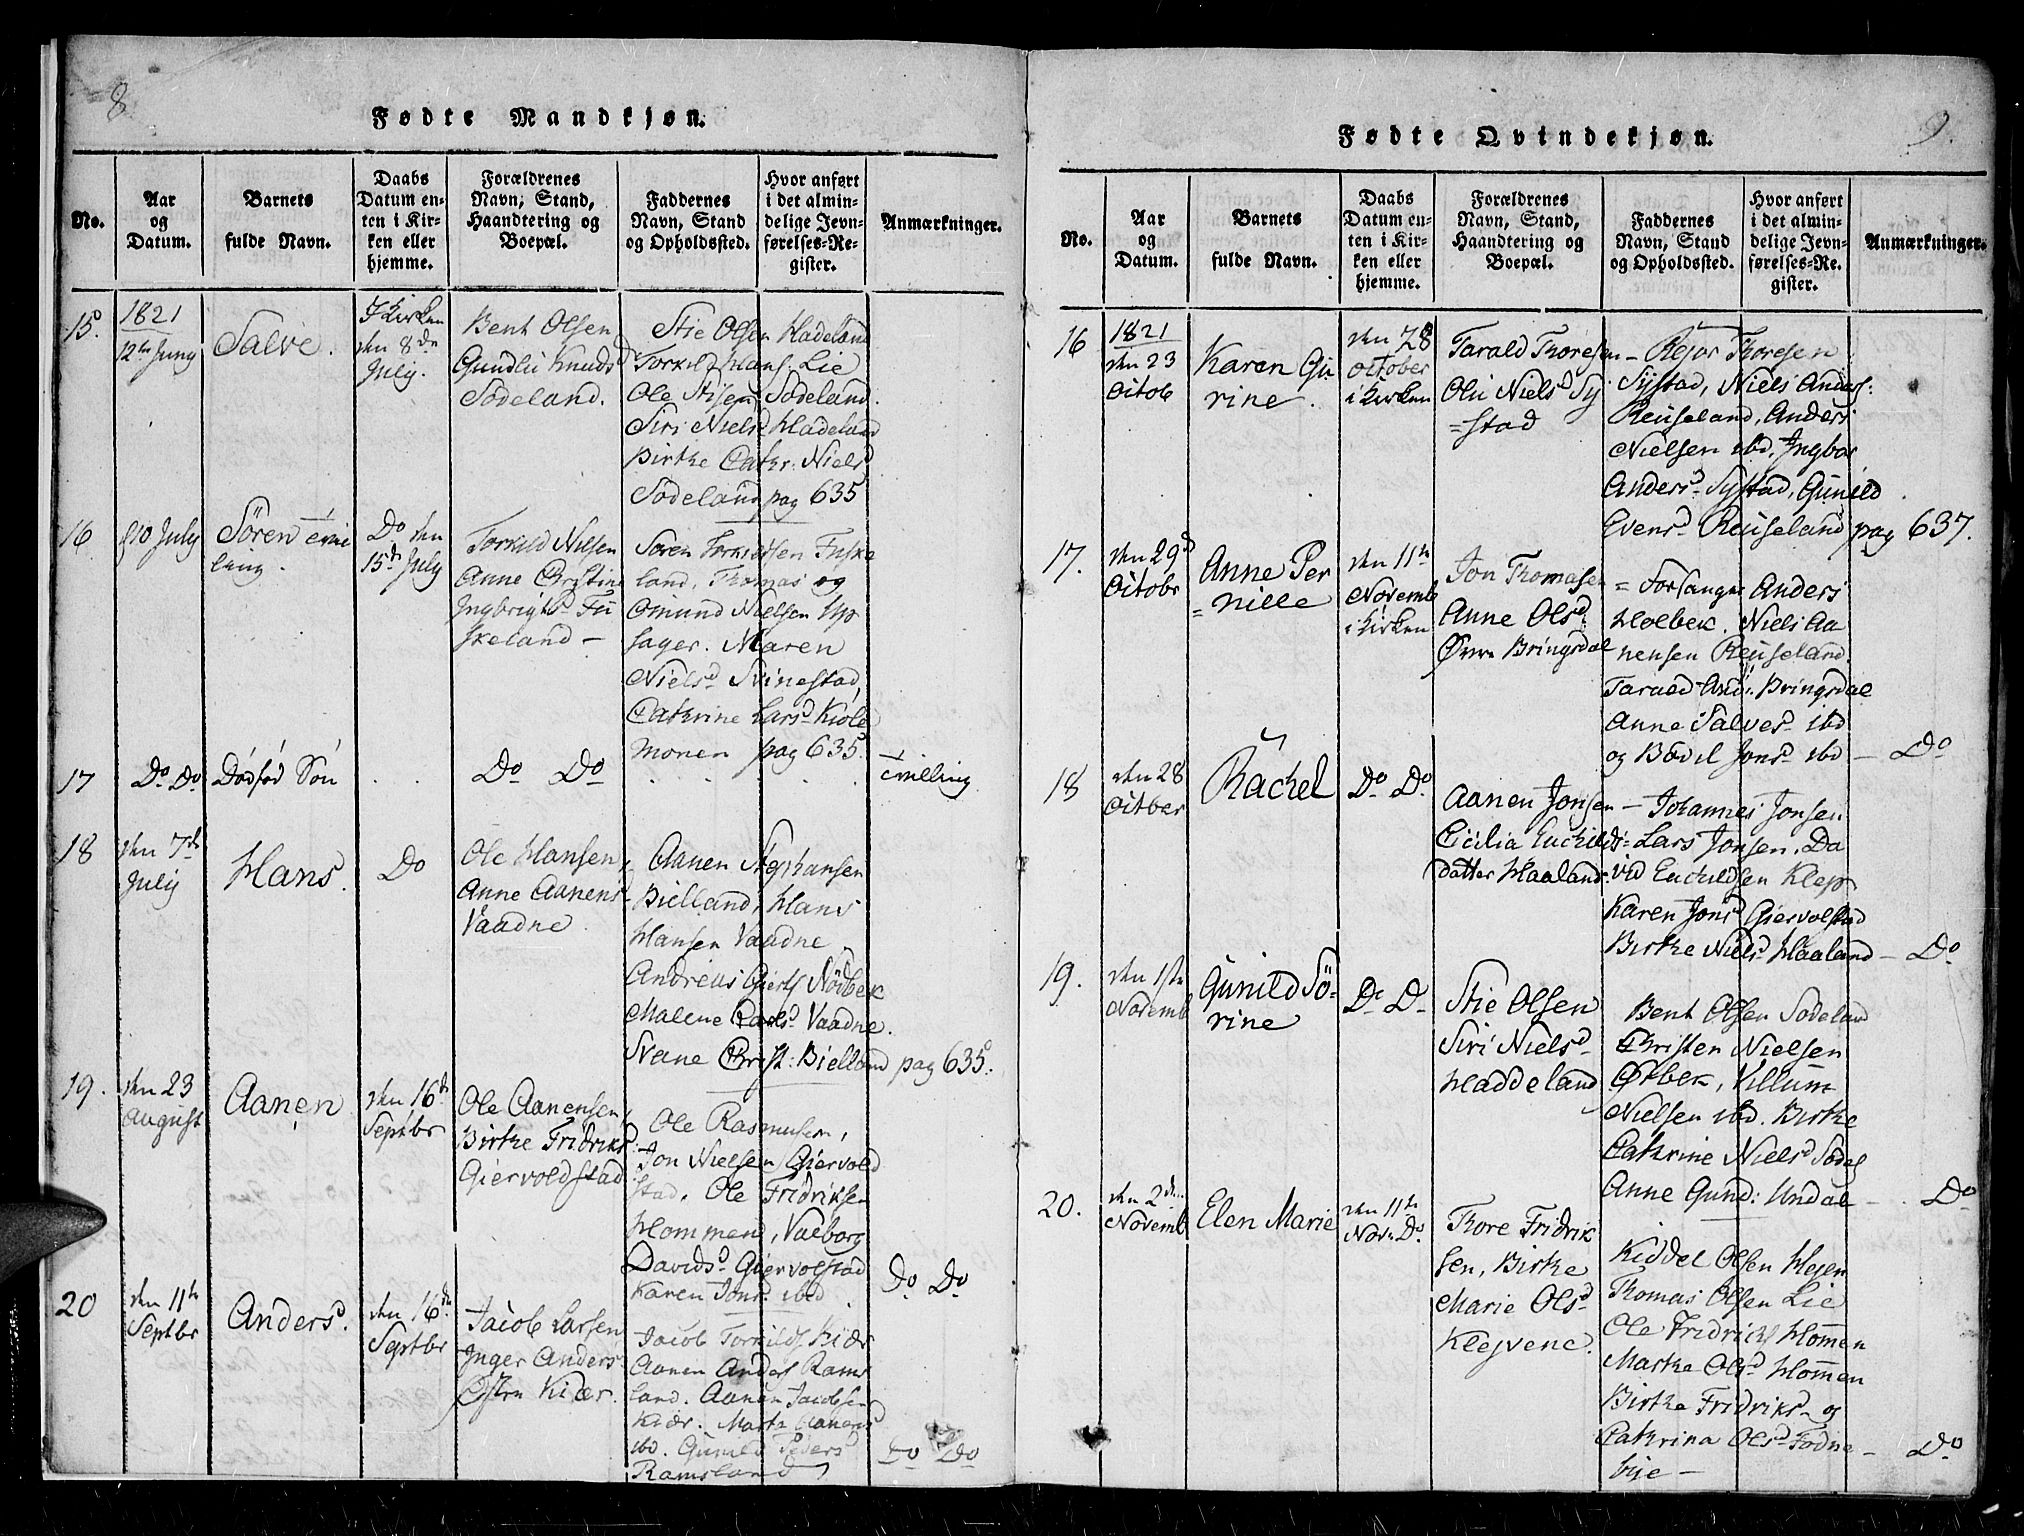 8
Fødte Mandkjøn.
No.
Aar og Datum.
Barnets fulde Navn.
Daabs Datum enten i Kirken eller hjemme.
Forældrenes Navn, Stand, Haandtering og Boepæl.
Faddernes Navn, Stand og Opholdssted.
Hvor anført i det almindelige Jevnførelses-Register.
Anmærkninger.
15.
1821
12te Juny
Salve.
I Kirken
den 8de
July.
Bent Olsen
Gundli Knudsd
Sødeland.
Stie Olsen Hadeland
Torkild Hans: Lie
Ole Stisen Sødeland.
Siri Nielsd Hadeland
Birthe Cathr: Nielsd
Sødeland pag 635
16
d 10 July
Søren tvil
ling.
Do den
15de July
Torkild Nilsen
Anne Christine
Ingbrigtsd Fu
skeland -
Søren Torkildsen Fuske
land, Thomas og
Omund Nielsen Up
sager. Maren
Nielsd Svinestad
Cathrine Larsd Kiole
monen pag 635
17
Do Do
Dødfød Søn
Do Do
tvilling
18
den 7de
July
Hans.
Do
Ole Hansen,
Anne Aanens
Vaadne
Aanen Stephansen
Bielland, Hans
Hansen Vaadne
Andreas Giers Nødbek
Malene Carlsd Vaadne.
Svane Christ: Bielland pag 635.
19.
den 23
August
Aanen
den 16de
Septbr
Ole Aanensen,
Birthe Fridriks
Giervoldstad
Ole Rasmusen,
Jon Nielsen Giervold
stad, Ole Fridriksen
Hommen, Valborg
Davidsd Giervolstad
Karen Jonsd ibd
Do Do
20
den 11te
Septbr
Anders.
den 16de
Septbr
Jacob Larsen
Inger Anders
Østre Kiær.
Jacob Torkilds Kiær
Aanen Anders Rams
land. Aanen Jacobsen
Kiær. Marthe Aanensd
ibd. Gunild Pedersd
Ramsland
Do Do
9.
Fødte Qvindekjøn.
No.
Aar og Datum.
Barnets fulde Navn.
Daabs Datum enten i Kirken eller hjemme.
Forældrenes Navn, Stand, Haandtering og Boepæl.
Faddernes Navn, Stand og Opholdssted.
Hvor anført i det almindelige Jevnførelses-Register.
Anmærkninger.
16
1821
den 23
Octob
Karen Gu
rine.
den 28
October
i Kirken
Tarald Thoresen
Oli Nielsd Sy
=stad
- Rejor Thoresen
Systad, Niels Anders:
Reuseland, Anders
Nielsen ibd, Ingbor
Andersd Systad, Gunild
Evensd Reuseland pag 637.
17.
den 29d
Octobr
Anne Per
=nille
den 11te
Novemb
i Kirken
Jon Thomasen
Anne Olsd
Øvre Bringsdal
= Forsanger Anders
Holbek. Niels Aa
nensen Reuseland.
Tarald And: Bringsdal
Anne Salvesd ibd
og Bodil Jonsd ibd - Do
18
den 28
Octber
Rachel
Do Do
Aanen Jonsen
Cicilia Euchilds=
datter Haaland
- Johannes Jonsen
Lars Jonsen, Da
vid Euchildsen Klep
Karen Jonsd Giervolstad
Birthe Nielsd Haaland - Do
19.
den 1ste
Novemb
Gunild Sø=
rine
Do Do
Stie Olsen
Siri Nielsd
Haddeland
Bent Olsen Sødeland
Christen Nielsen
Østbek, Villum
Nielsen ibd. Birthe
Cathrine Nielsd Sødel
Anne Gund: Undal - Do
20.
den 2den
Novemb
Elen Marie
den 11te
Nov. Do
Thore Fridrik
sen, Birthe
Marie Olsd
Klejvene.
Kiddel Olsen Hejen
Thomas Olsen Lie
Ole Fridriks Hommen
Marthe Olsd Hommen
Birthe Fridriks og
Cathrina Olsd Fodne
bye - Do